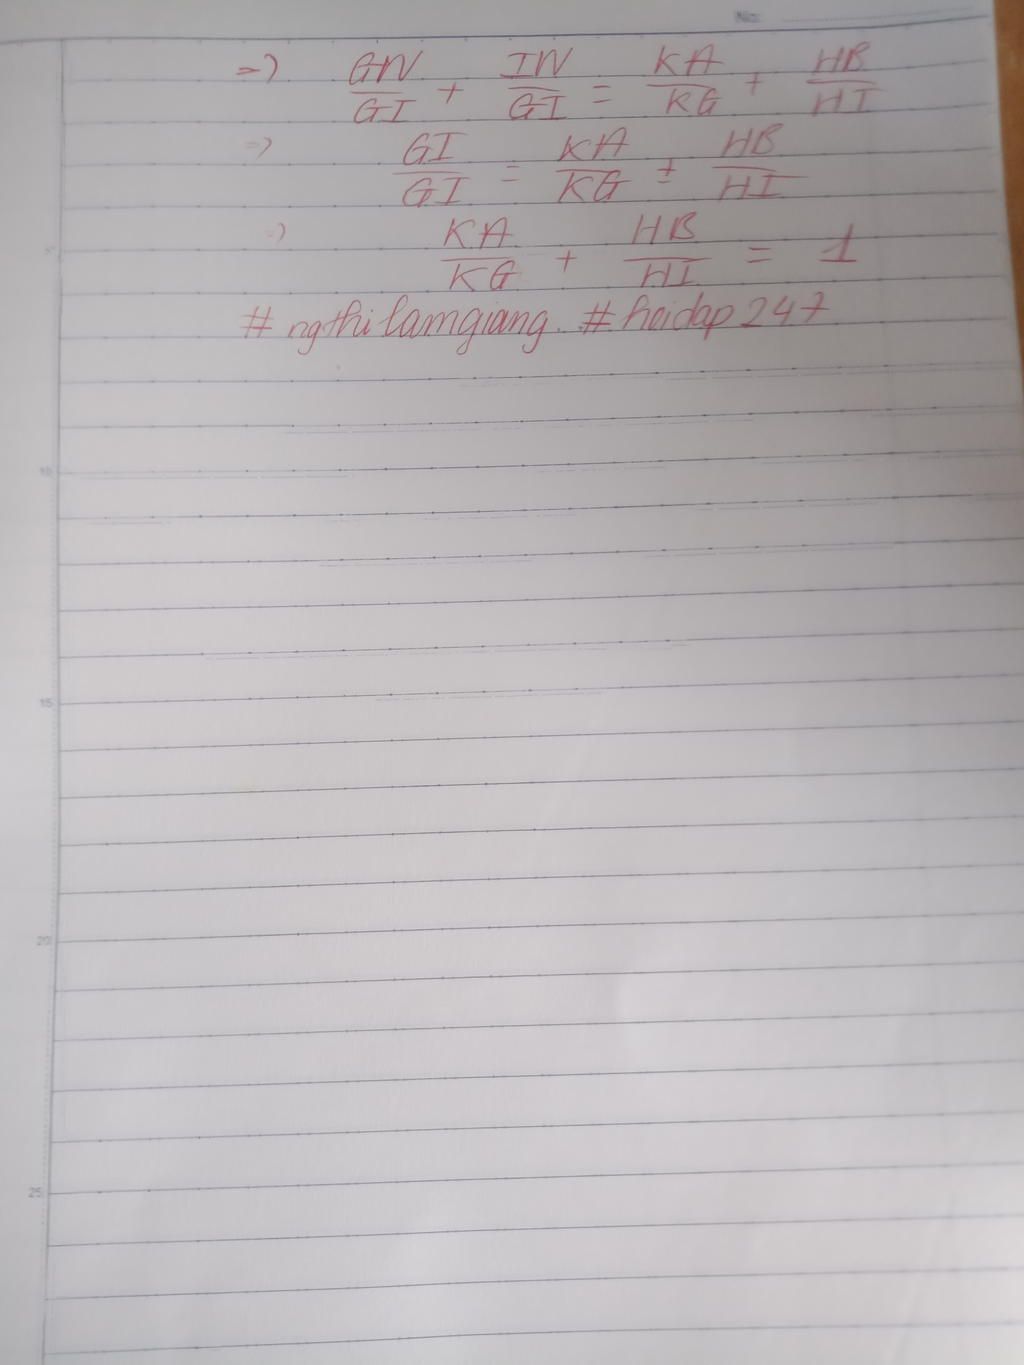 No:
=> GN/GI + IN/GI = KA/KG + HB/HI
=> GI/GI = KA/KG + HB/HI
=> KA/KG + HB/HI = 1
# ngthilamgiang. # hoidap247
10
15
20
25